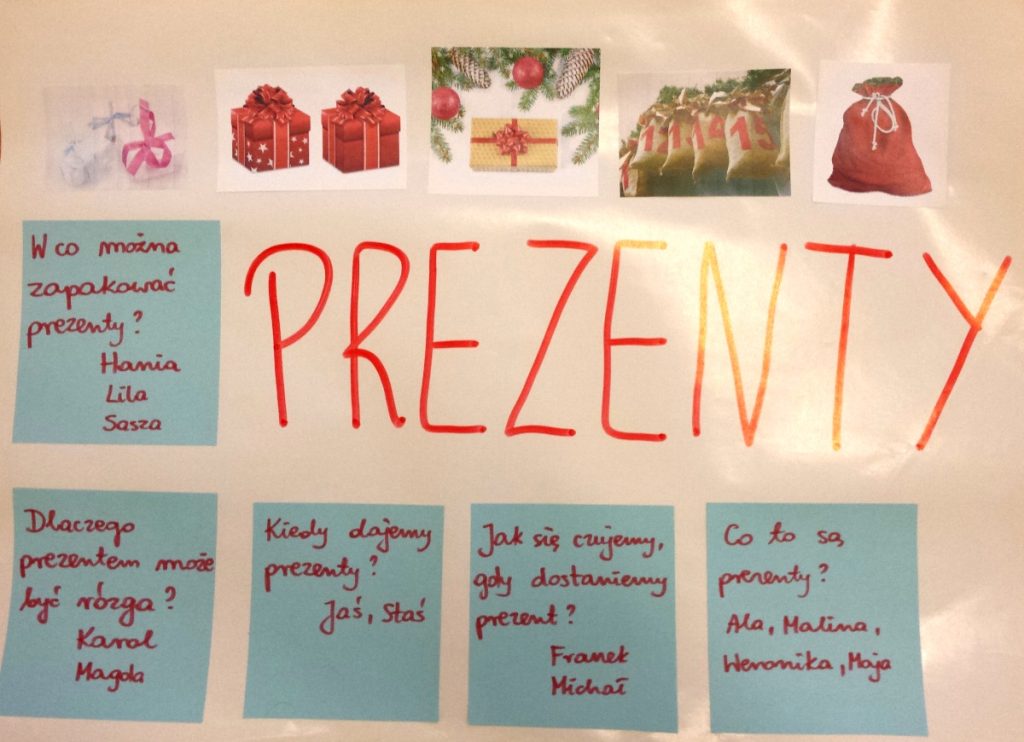 13 14 15
W co można
zapakować
prezenty?
Hania
Lila
Sasza
PREZENTY
Dlaczego
prezentem może
być rózga?
Karol
Magda
Kiedy dajemy
prezenty?
Jaś, Staś
Jak się czujemy,
gdy dostaniemy
prezent?
Franek
Michał
Co to są
prezenty?
Ala, Malina,
Weronika, Maja